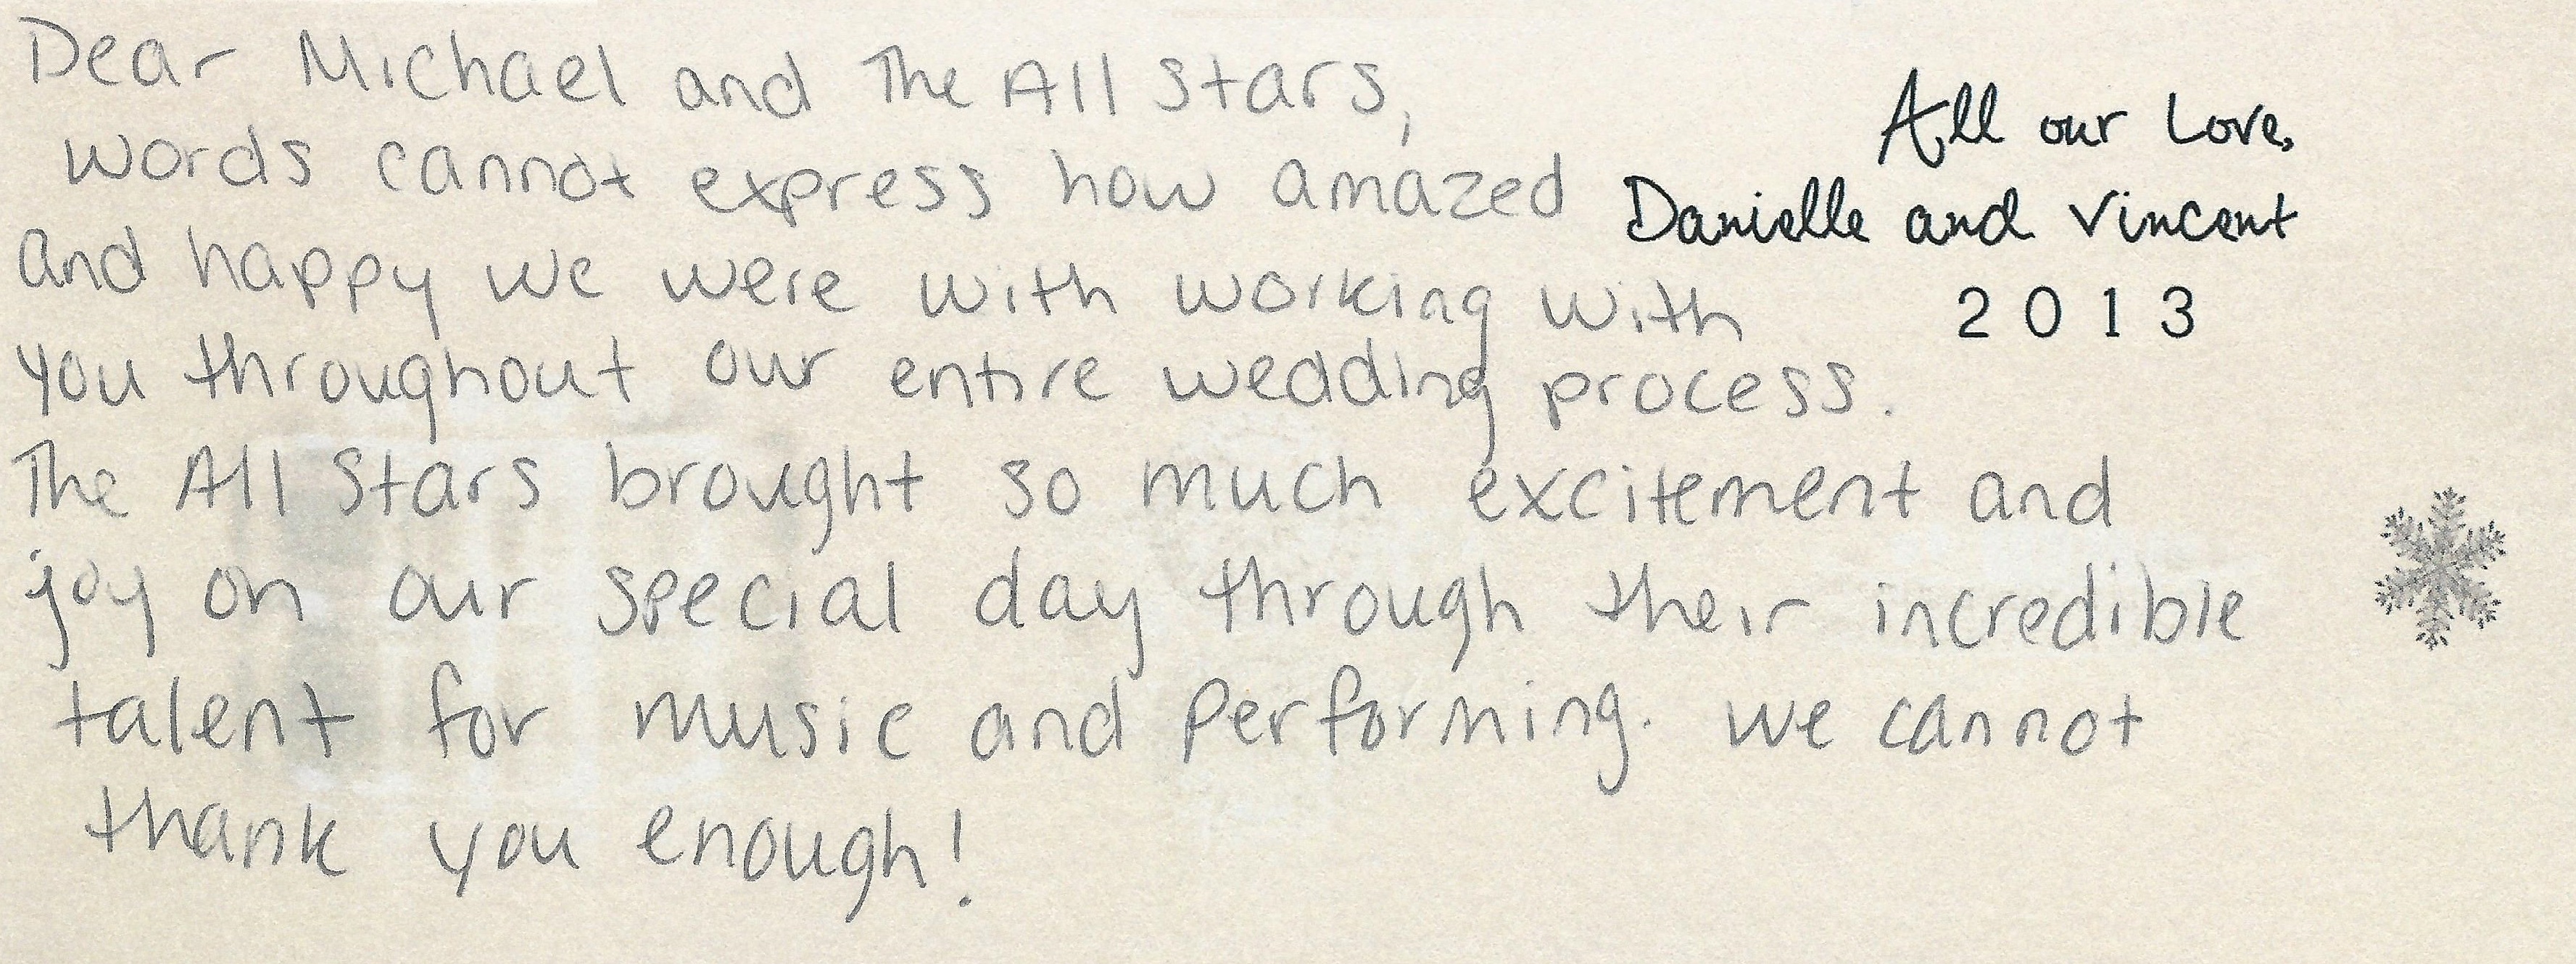 Dear Michael and The All Stars,
words cannot express how amazed
and happy we were with working with
you throughout our entire wedding process.
The All Stars brought so much excitement and
joy on our special day through their incredible
talent for music and performing. we cannot
thank you enough!
All our Love,
Danielle and Vincent
2013